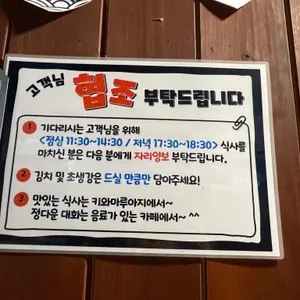 고객님 협조 부탁드립니다
1 기다리시는 고객님을 위해
<점심 11:30~14:30 / 저녁 17:30~18:30> 식사를
마치신 분은 다음 분에게 자리양보 부탁드립니다.
2 김치 및 초생강은 드실 만큼만 담아주세요!
3 맛있는 식사는 키와마루아지에서~
정다운 대화는 음료가 있는 카페에서~ ^^